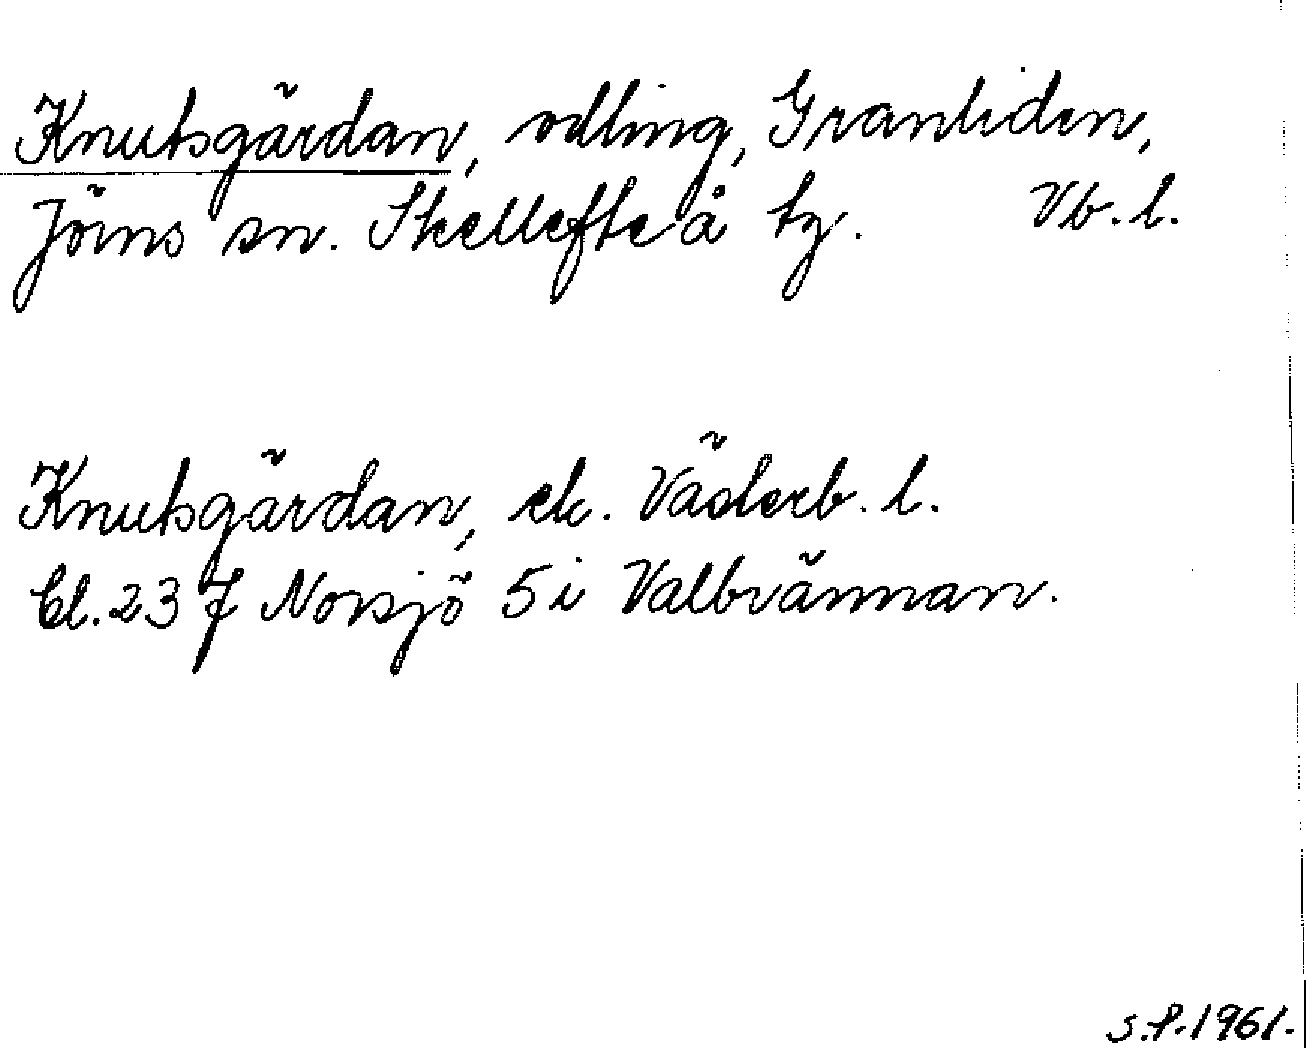 Knutsgärdan, odling, Granliden,
Jörns sn. Skellefteå tg. Vb. l.
Knutsgärdan, ek. Västerb. l.
Bl. 237 Norsjö 5i Valbrännan.
S.P. 1961.